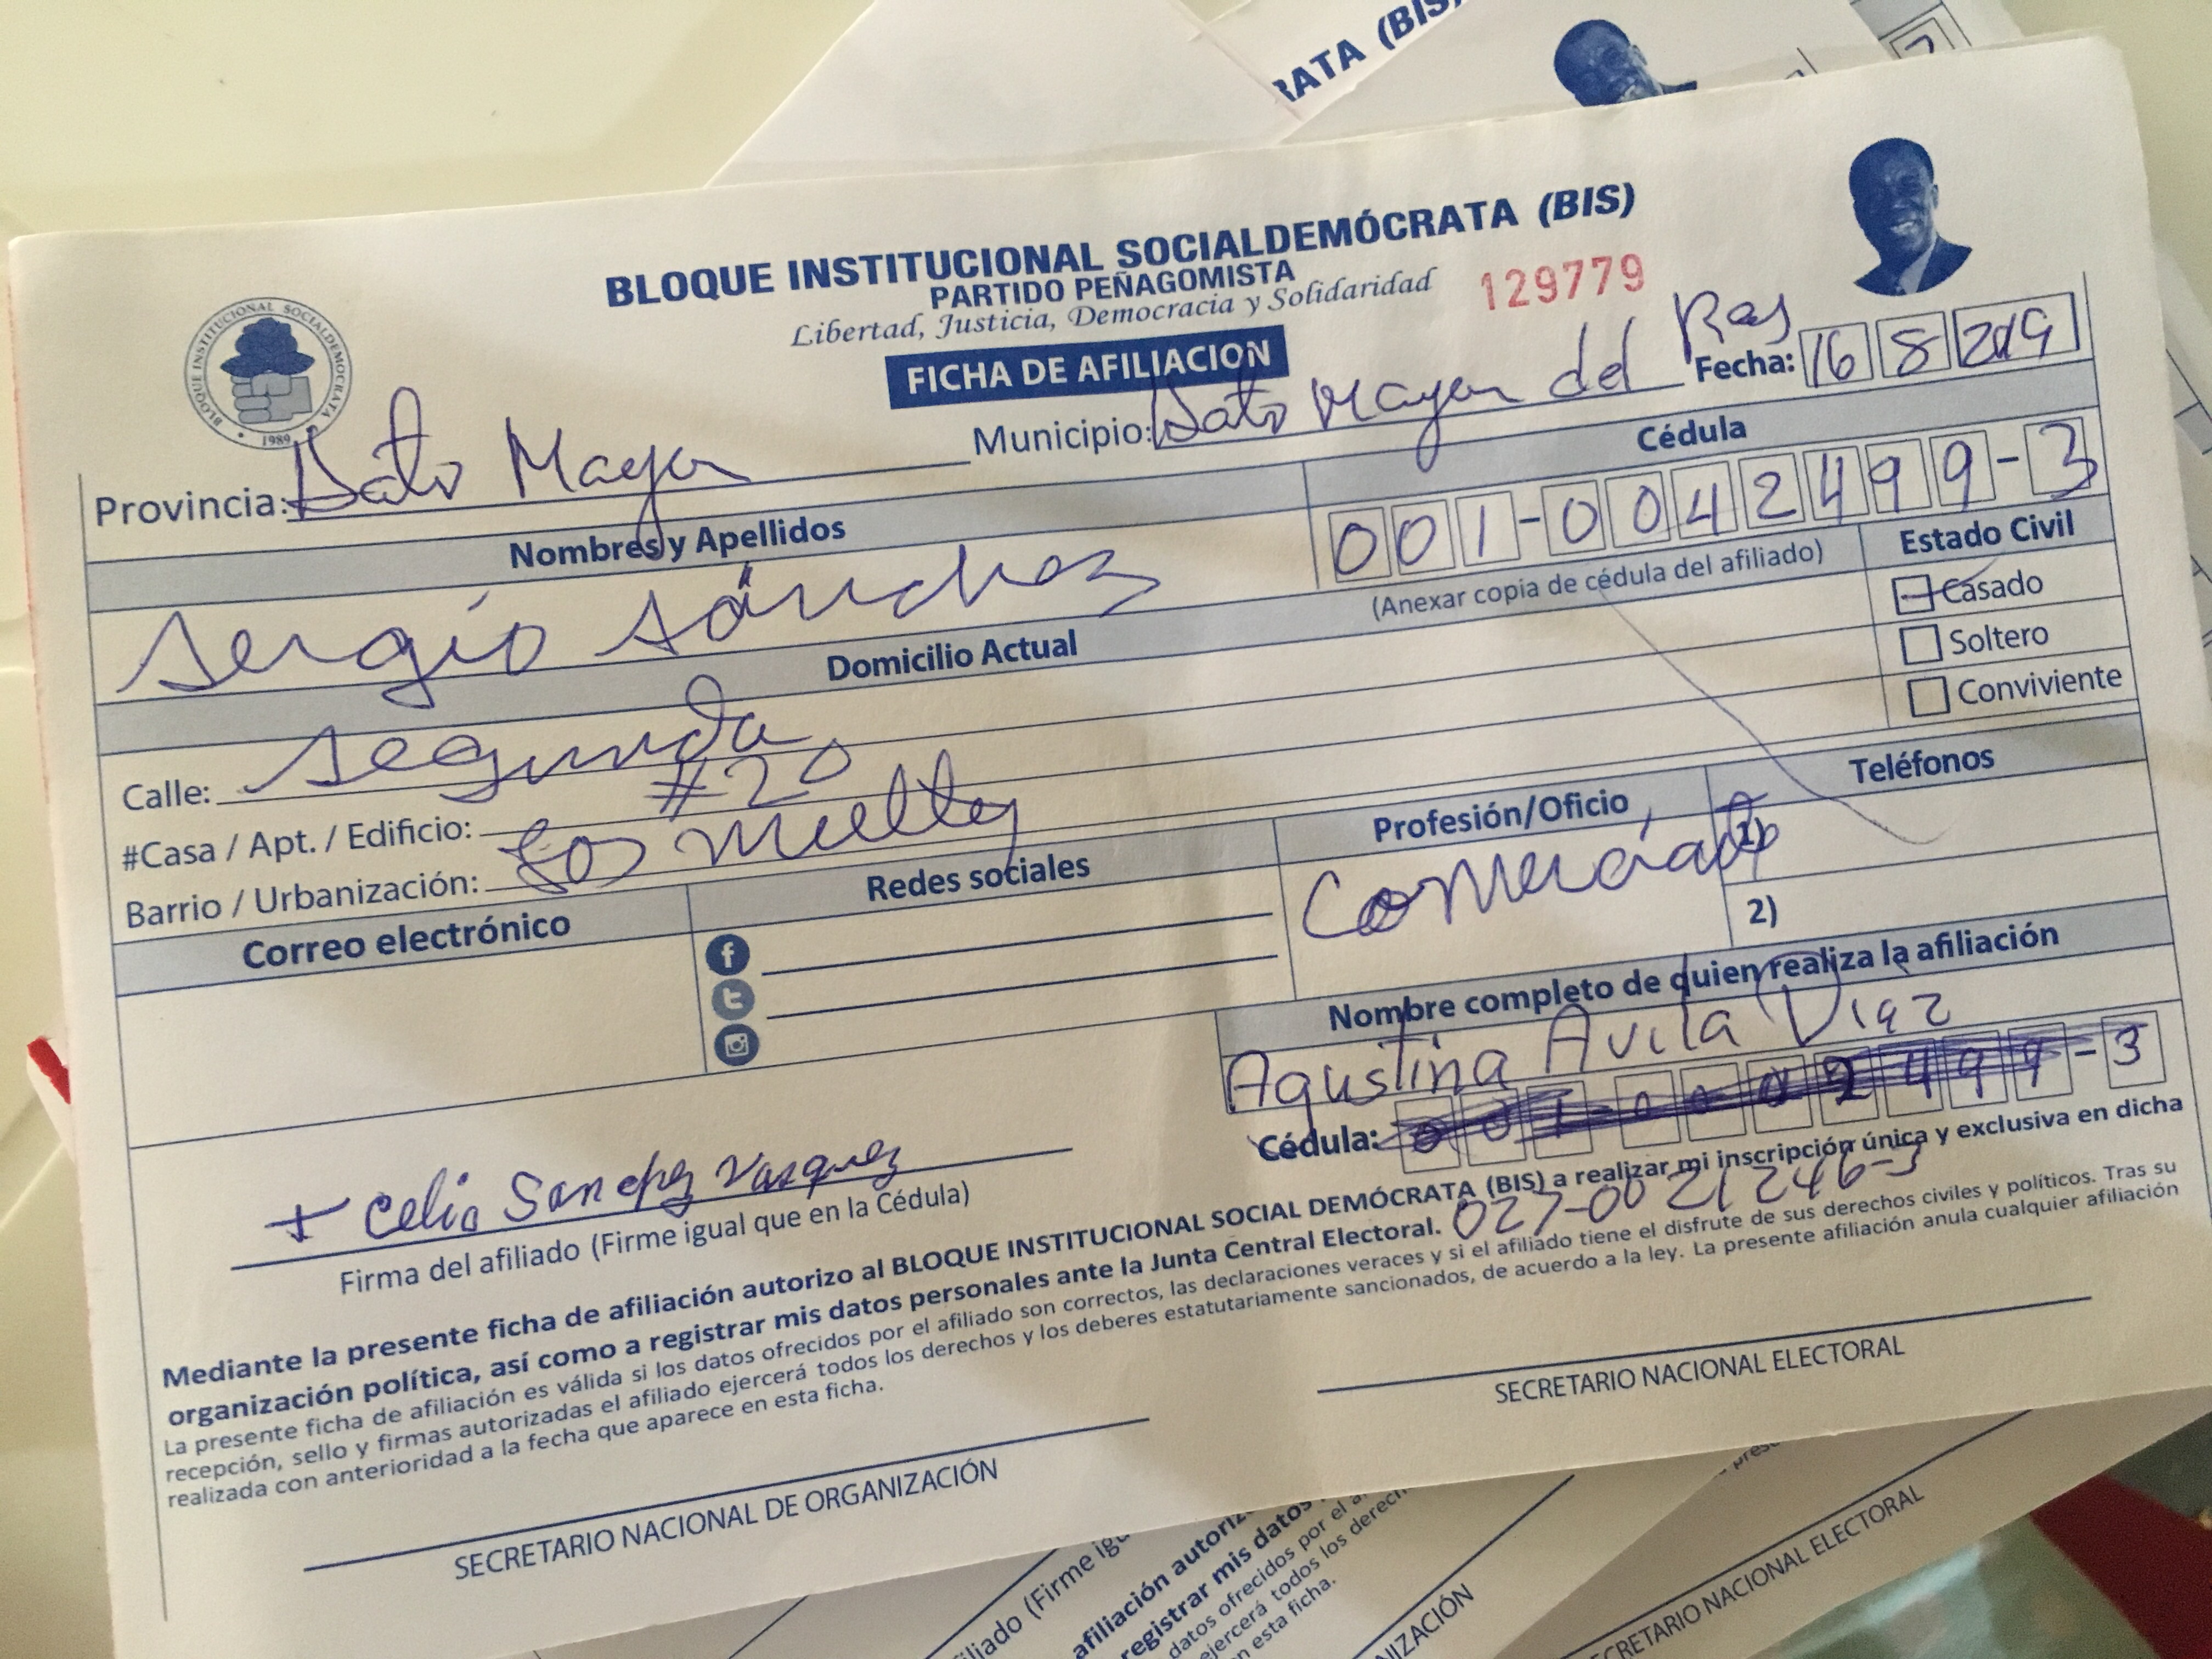 RATA (BIS)
BLOQUE INSTITUCIONAL SOCIALDEMÓCRATA (BIS)
PARTIDO PEÑAGOMISTA
Libertad, Justicia, Democracia y Solidaridad
129779
FICHA DE AFILIACION
BLOQUE INSTITUCIONAL SOCIALDEMÓCRATA
1989
Fecha: 16 8 2019
Provincia: Hato Mayor
Municipio: Hato Mayor del Rey
Nombres y Apellidos
Cédula
Sergio Sánchez
001-0042499-3
(Anexar copia de cédula del afiliado)
Estado Civil
Casado
Soltero
Conviviente
Domicilio Actual
Calle: Segunda
#Casa / Apt. / Edificio: #20
Barrio / Urbanización: Los
Correo electrónico
Redes sociales
Profesión/Oficio
Teléfonos
Comerciante
1)
2)
Nombre completo de quien realiza la afiliación
Agustina Avila Diaz
Cédula: 3
027-0021246-3
+ Celia Sanchez Vasquez
Firma del afiliado (Firme igual que en la Cédula)
Mediante la presente ficha de afiliación autorizo al BLOQUE INSTITUCIONAL SOCIAL DEMÓCRATA (BIS) a realizar mi inscripción única y exclusiva en dicha
organización política, así como a registrar mis datos personales ante la Junta Central Electoral.
La presente ficha de afiliación es válida si los datos ofrecidos por el afiliado son correctos, las declaraciones veraces y si el afiliado tiene el disfrute de sus derechos civiles y políticos. Tras su
recepción, sello y firmas autorizadas el afiliado ejercerá todos los derechos y los deberes estatutariamente sancionados, de acuerdo a la ley. La presente afiliación anula cualquier afiliación
realizada con anterioridad a la fecha que aparece en esta ficha.
SECRETARIO NACIONAL DE ORGANIZACIÓN
SECRETARIO NACIONAL ELECTORAL
filiado (Firme igu
afiliación autoriz
registrar mis datos
datos ofrecidos por el a
ejercerá todos los derech
en esta ficha.
NIZACIÓN
SECRETARIO NACIONAL ELECTORAL